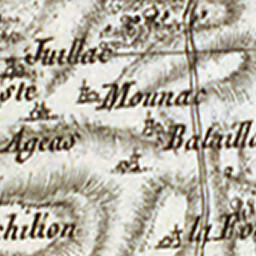 Juillac
ste
Mounac
Ageas
Batailla
chilion
la Fo